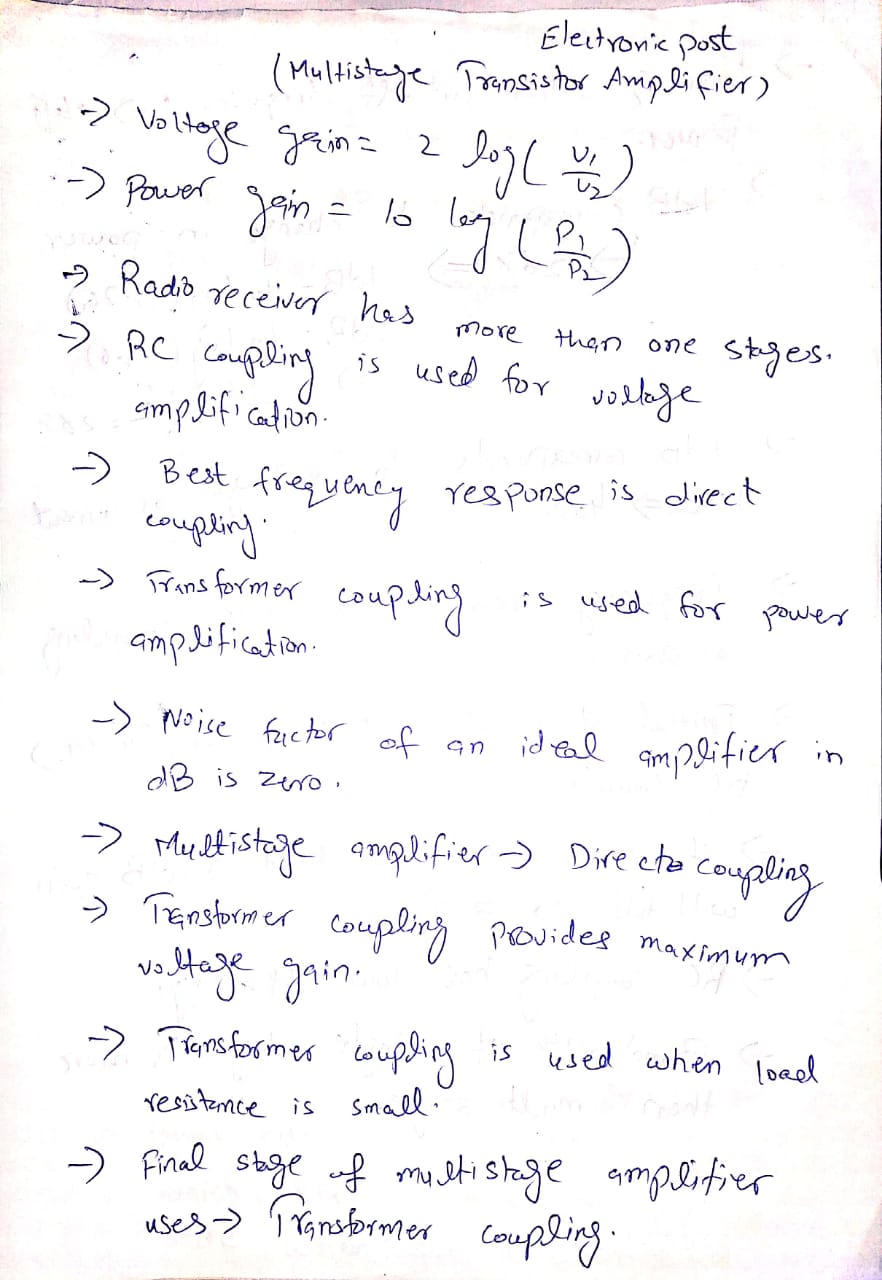 Electronic post
(Multistage Transistor Amplifier)
→ Voltage gain = 2 log( V1/V2 )
→ Power gain = 10 log ( P1/P2 )
→ Radio receiver has more than one stages.
→ RC coupling is used for voltage
amplification.
→ Best frequency response is direct
coupling.
→ Transformer coupling is used for power
amplification.
→ Noise factor of an ideal amplifier in
dB is zero.
→ Multistage amplifier → Direct coupling
→ Transformer coupling Provides maximum
voltage gain.
→ Transformer coupling is used when load
resistance is small.
→ Final stage of multistage amplifier
uses → Transformer coupling.